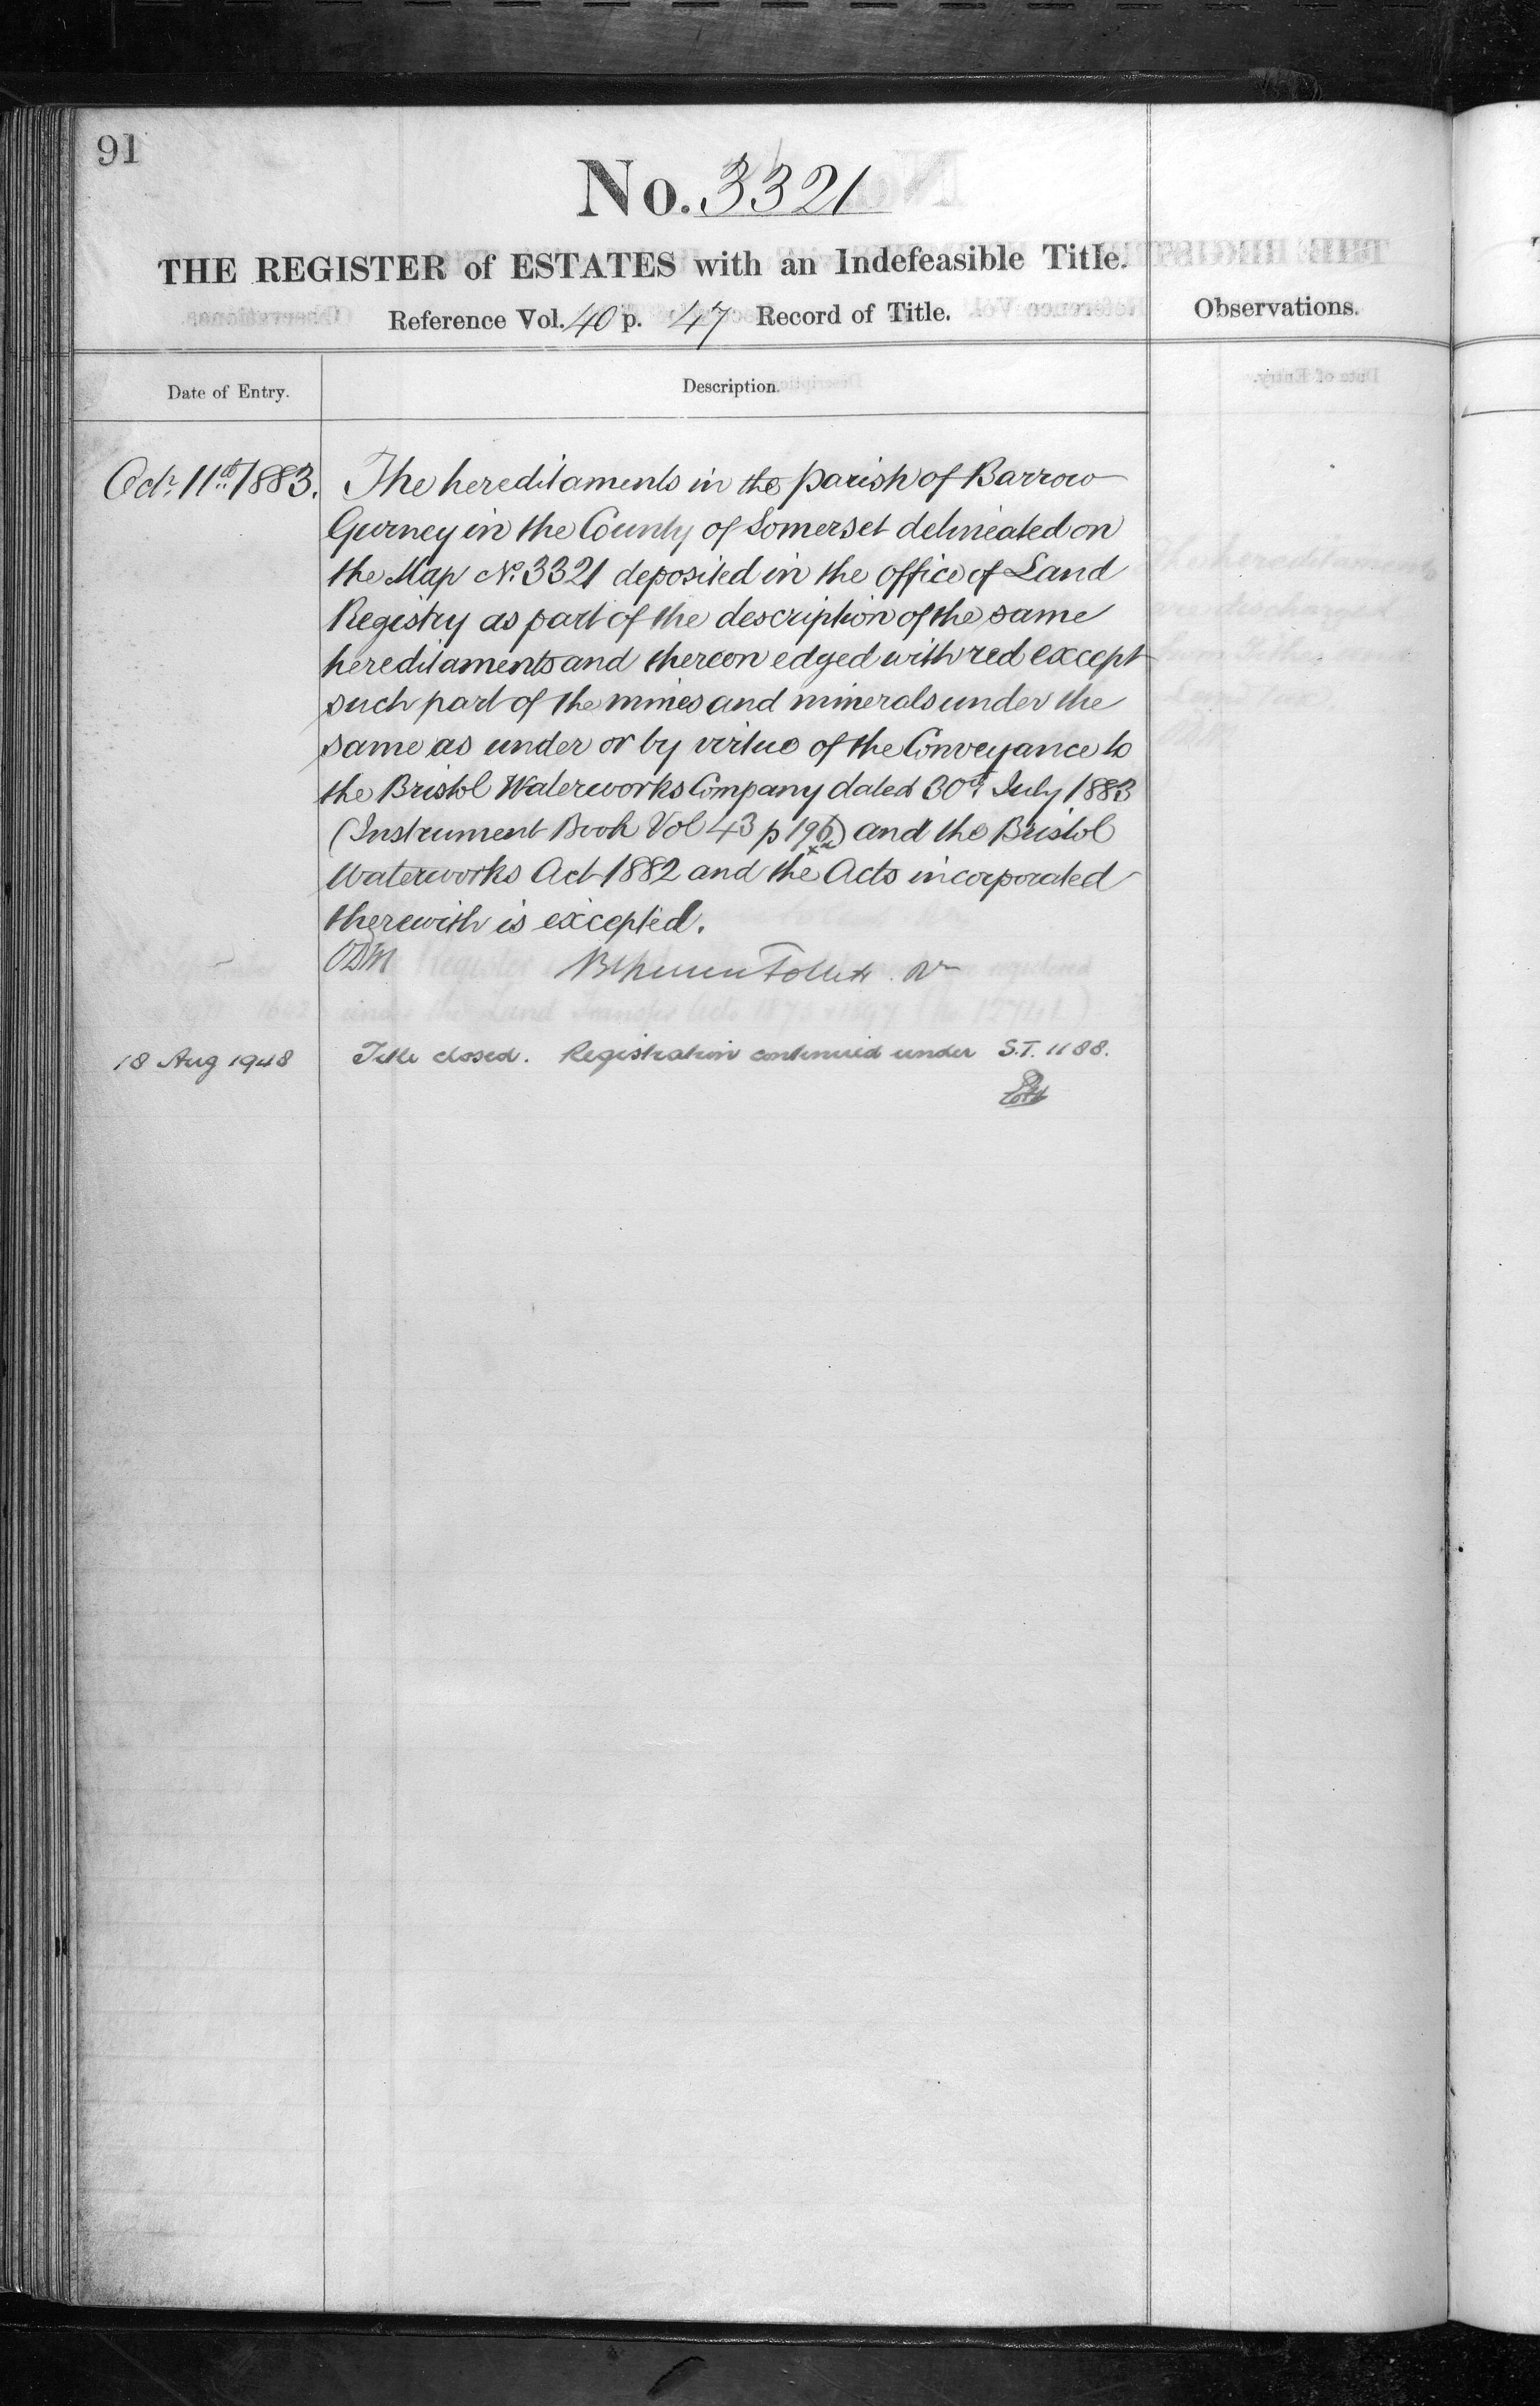 91
No. 3321
THE REGISTER of ESTATES with an Indefeasible Title.
Reference Vol. 40 p. 47 Record of Title.
Observations.
Date of Entry.
Description.
Octr. 11th 1883.
The hereditaments in the parish of Barrow
Gurney in the County of Somerset delineated on
the Map No. 3321 deposited in the office of Land
Registry as part of the description of the same
hereditaments and thereon edged with red except
such part of the mines and minerals under the
same as under or by virtue of the Conveyance to
the Bristol Waterworks Company dated 30th July 1883
(Instrument Book Vol 43 p 196) and the Bristol
Waterworks Act 1882 and the Acts incorporated
therewith is excepted.
18 Aug 1948
Title closed. Registration continued under S.T. 1188.